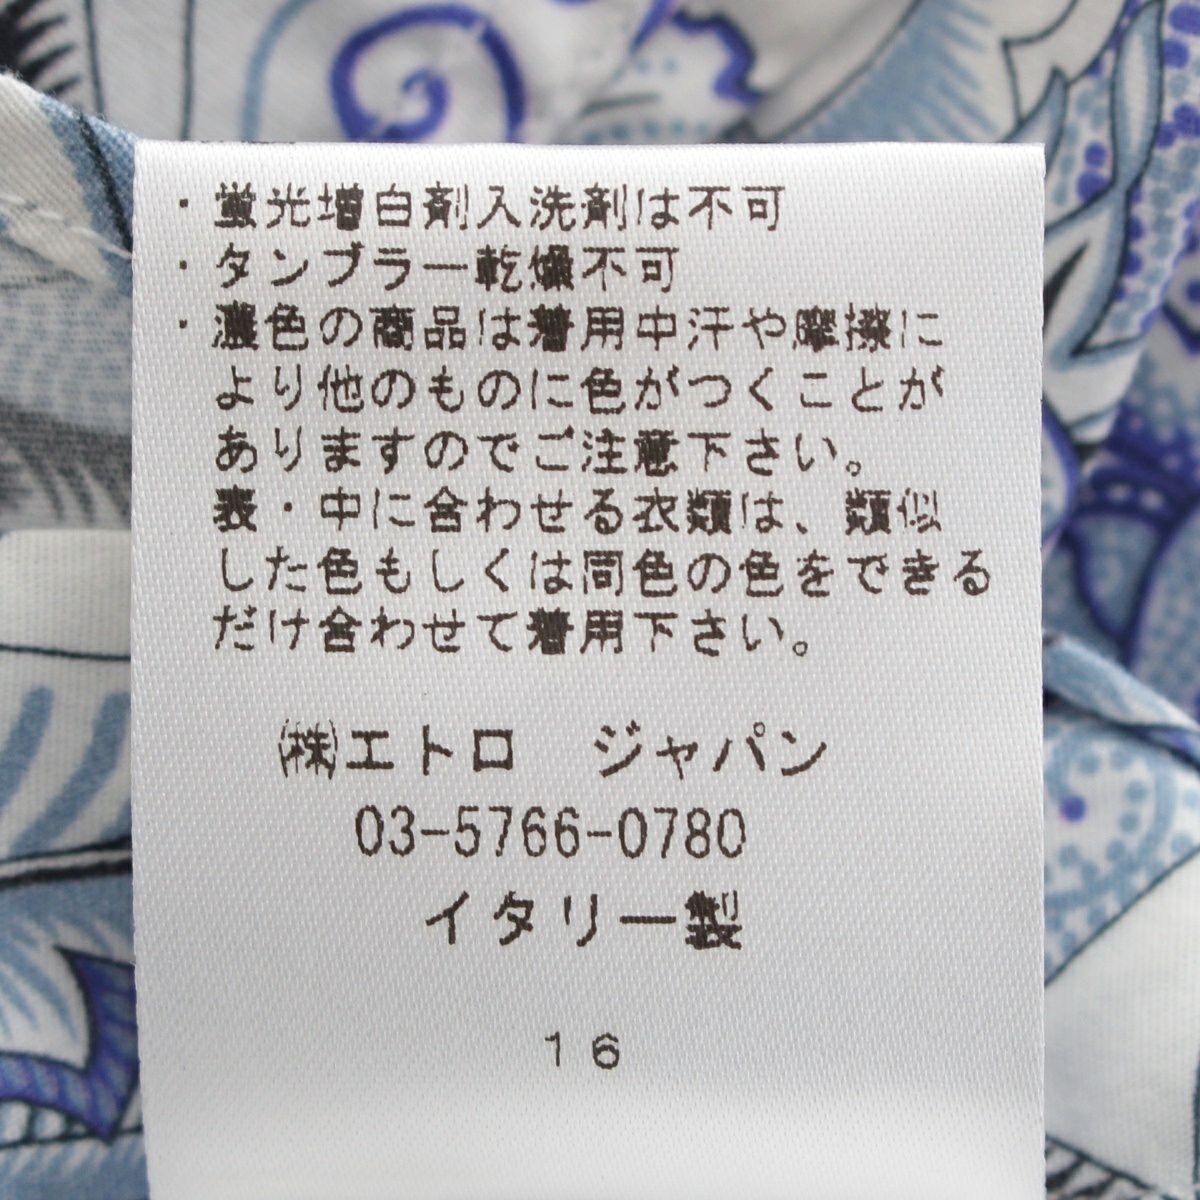 ・蛍光増白剤入洗剤は不可
・タンブラー乾燥不可
・濃色の商品は着用中汗や摩擦に
より他のものに色がつくことが
ありますのでご注意下さい。
表・中に合わせる衣類は、類似
した色もしくは同色の色をできる
だけ合わせて着用下さい。
㈱エトロ　ジャパン
03-5766-0780
イタリー製
16